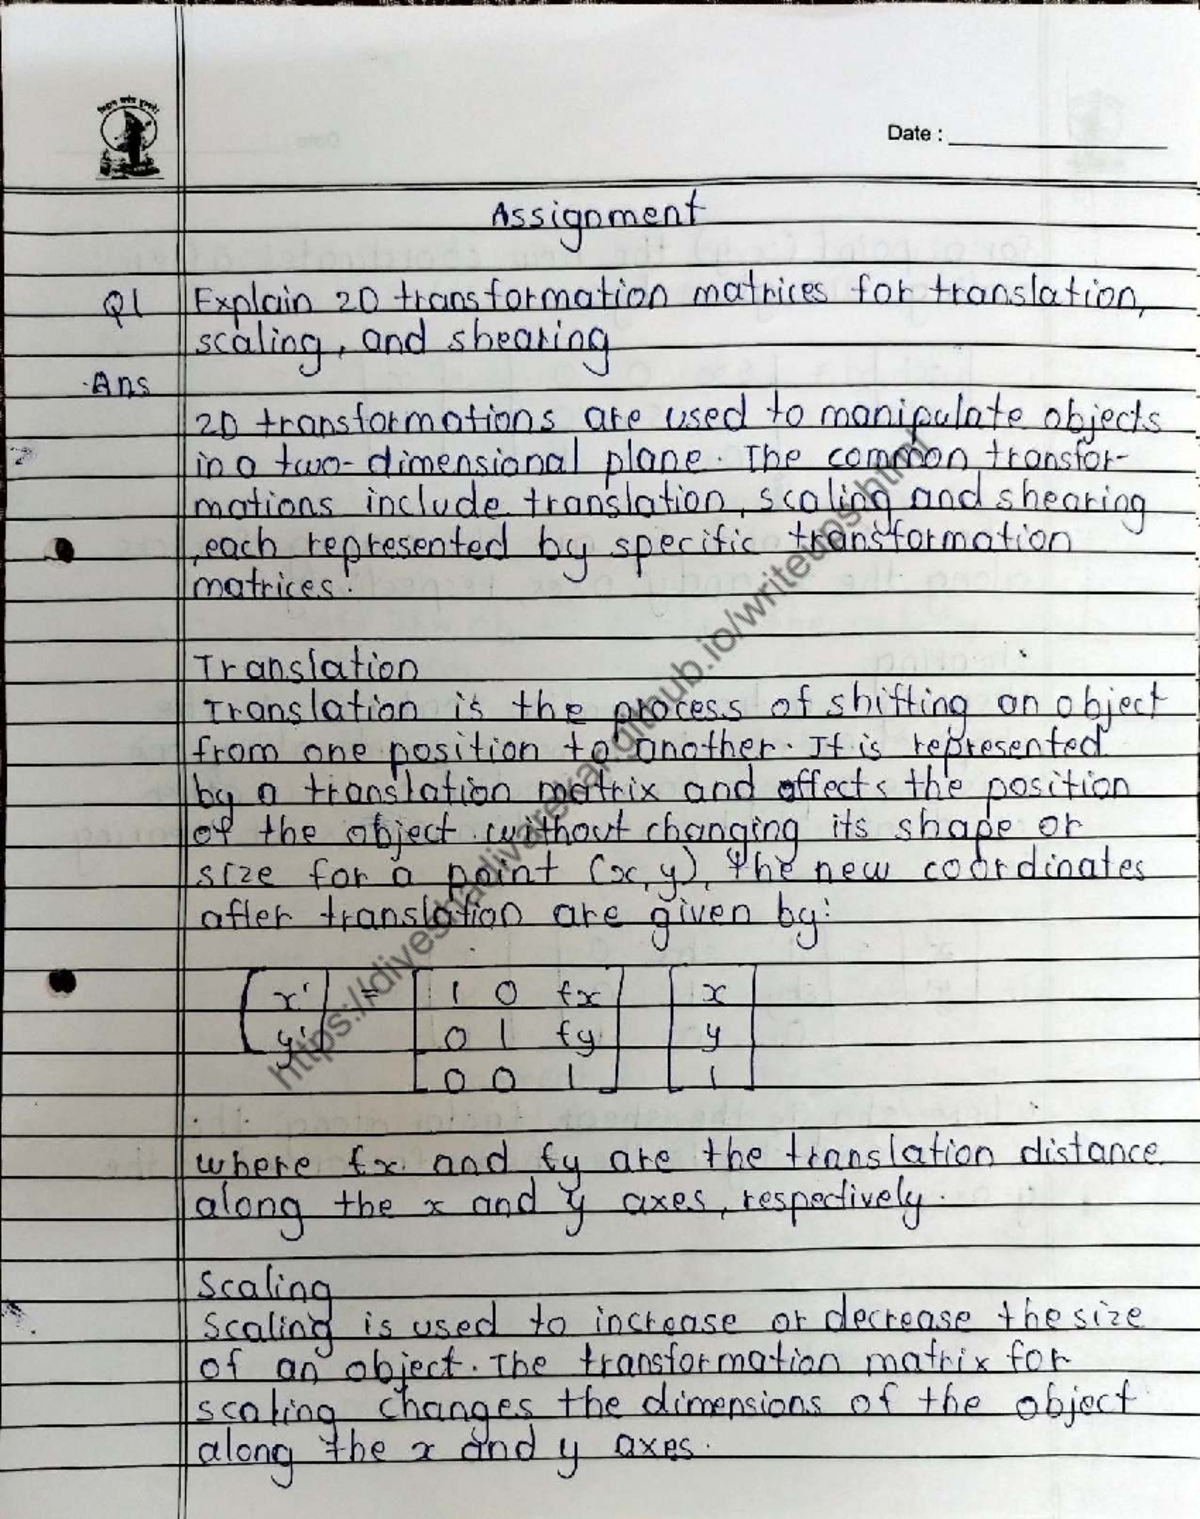 Date :
Assignment
Q1 Explain 2D transformation matrices for translation,
scaling, and shearing
Ans
2D transformations are used to manipulate objects
in a two-dimensional plane. The common transfor-
mations include translation, scaling and shearing
,each represented by specific transformation
matrices.
Translation
Translation is the process of shifting an object
from one position to another. It is represented
by a translation matrix and affects the position
of the object without changing its shape or
size for a point (x,y), the new coordinates
after translation are given by:
x' = 1 0 tx x
y' 0 1 ty y
0 0 1 1
where tx and ty are the translation distance
along the x and y axes, respectively.
Scaling
Scaling is used to increase or decrease the size
of an object. The transformation matrix for
scaling changes the dimensions of the object
along the x and y axes.
https://diveshadivarekar.github.io/writeups.html